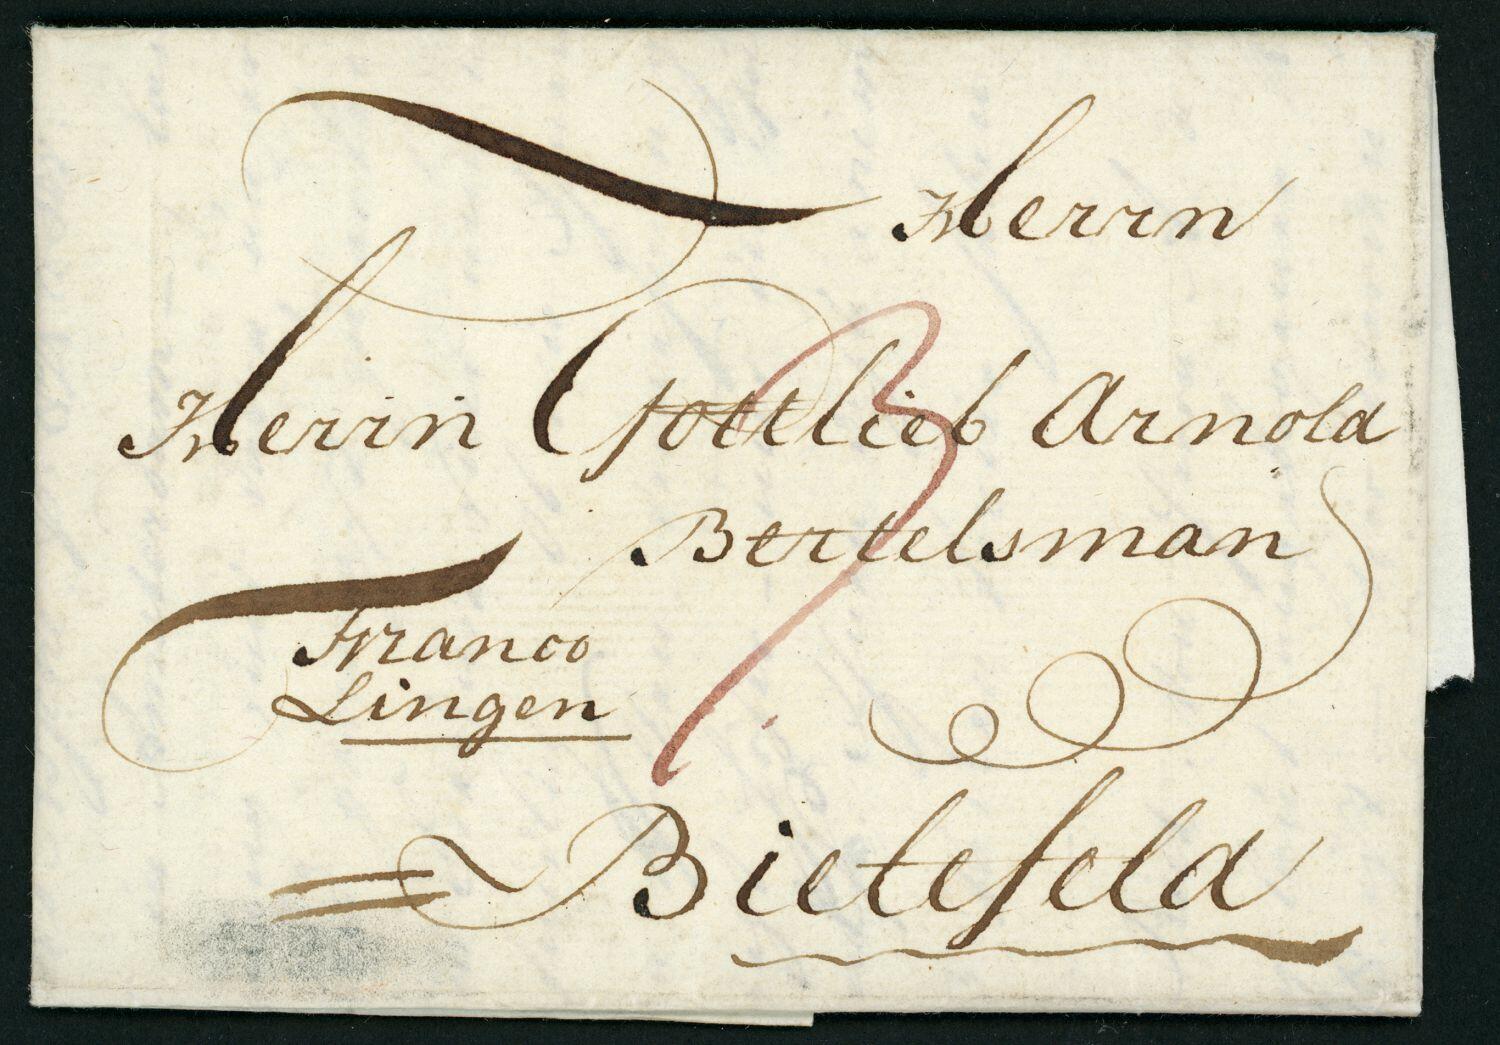 Herrn
Herrn Gottlieb Arnold
Bertelsman
Franco
Lingen
3
Bielefeld